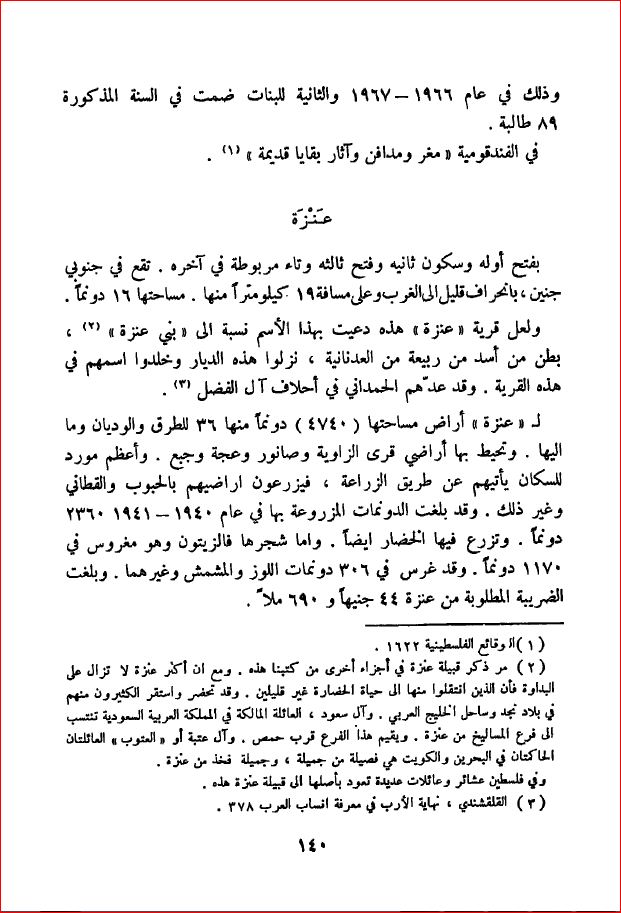 وذلك في عام ١٩٦٦ – ١٩٦٧ والثانية للبنات ضمت في السنة المذكورة
٨٩ طالبة .
في الفندقومية « مغر ومدافن وآثار بقايا قديمة » (١) .
عَنْزَة
بفتح أوله وسكون ثانيه وفتح ثالثه وتاء مربوطة في آخره . تقع في جنوبي
جنين ، بانحراف قليل الى الغرب وعلى مسافة ١٩ كيلومتراً منها . مساحتها ١٦ دونماً .
ولعل قرية « عنزة » هذه دعيت بهذا الأسم نسبة الى « بني عنزة » (٢) ،
بطن من أسد من ربيعة من العدنانية ، نزلوا هذه الديار وخلدوا اسمهم في
هذه القرية . وقد عدّهم الحمداني في أحلاف آل الفضل (٣) .
لـ « عنزة » أراض مساحتها ( ٤٧٤٠ ) دونماً منها ٣٦ للطرق والوديان وما
اليها . وتحيط بها أراضي قرى الزاوية وصانور وعجة وجبع . وأعظم مورد
للسكان يأتيهم عن طريق الزراعة ، فيزرعون اراضيهم بالحبوب والقطاني
وغير ذلك . وقد بلغت الدونمات المزروعة بها في عام ١٩٤٠ – ١٩٤١ ٢٣٦٠
دونماً . وتزرع فيها الخضار ايضاً . واما شجرها فالزيتون وهو مغروس في
١١٧٠ دونماً . وقد غرس في ٣٠٦ دونمات اللوز والمشمش وغيرهما . وبلغت
الضريبة المطلوبة من عنزة ٤٤ جنيهاً و ٦٩٠ ملاً .
( ١ ) الوقائع الفلسطينية ١٦٢٢ .
( ٢ ) مر ذكر قبيلة عنزة في أجزاء أخرى من كتبنا هذه . ومع ان أكثر عنزة لا تزال على
البداوة فأن الذين انتقلوا منها الى حياة الحضارة غير قليلين . وقد تحضر واستقر الكثيرون منهم
في بلاد نجد وساحل الخليج العربي . وآل سعود ، العائلة المالكة في المملكة العربية السعودية تنتسب
الى فرع المساليخ من عنزة . ويقيم هذا الفرع قرب حمص . وآل عتبة أو « العتوب » العائلتان
الحاكمتان في البحرين والكويت هي فصيلة من جميلة ، وجميلة فخذ من عنزة .
وفي فلسطين عشائر وعائلات عديدة تعود بأصلها الى قبيلة عنزة هذه .
( ٣ ) القلقشندي ، نهاية الأرب في معرفة انساب العرب ٣٧٨ .
١٤٠